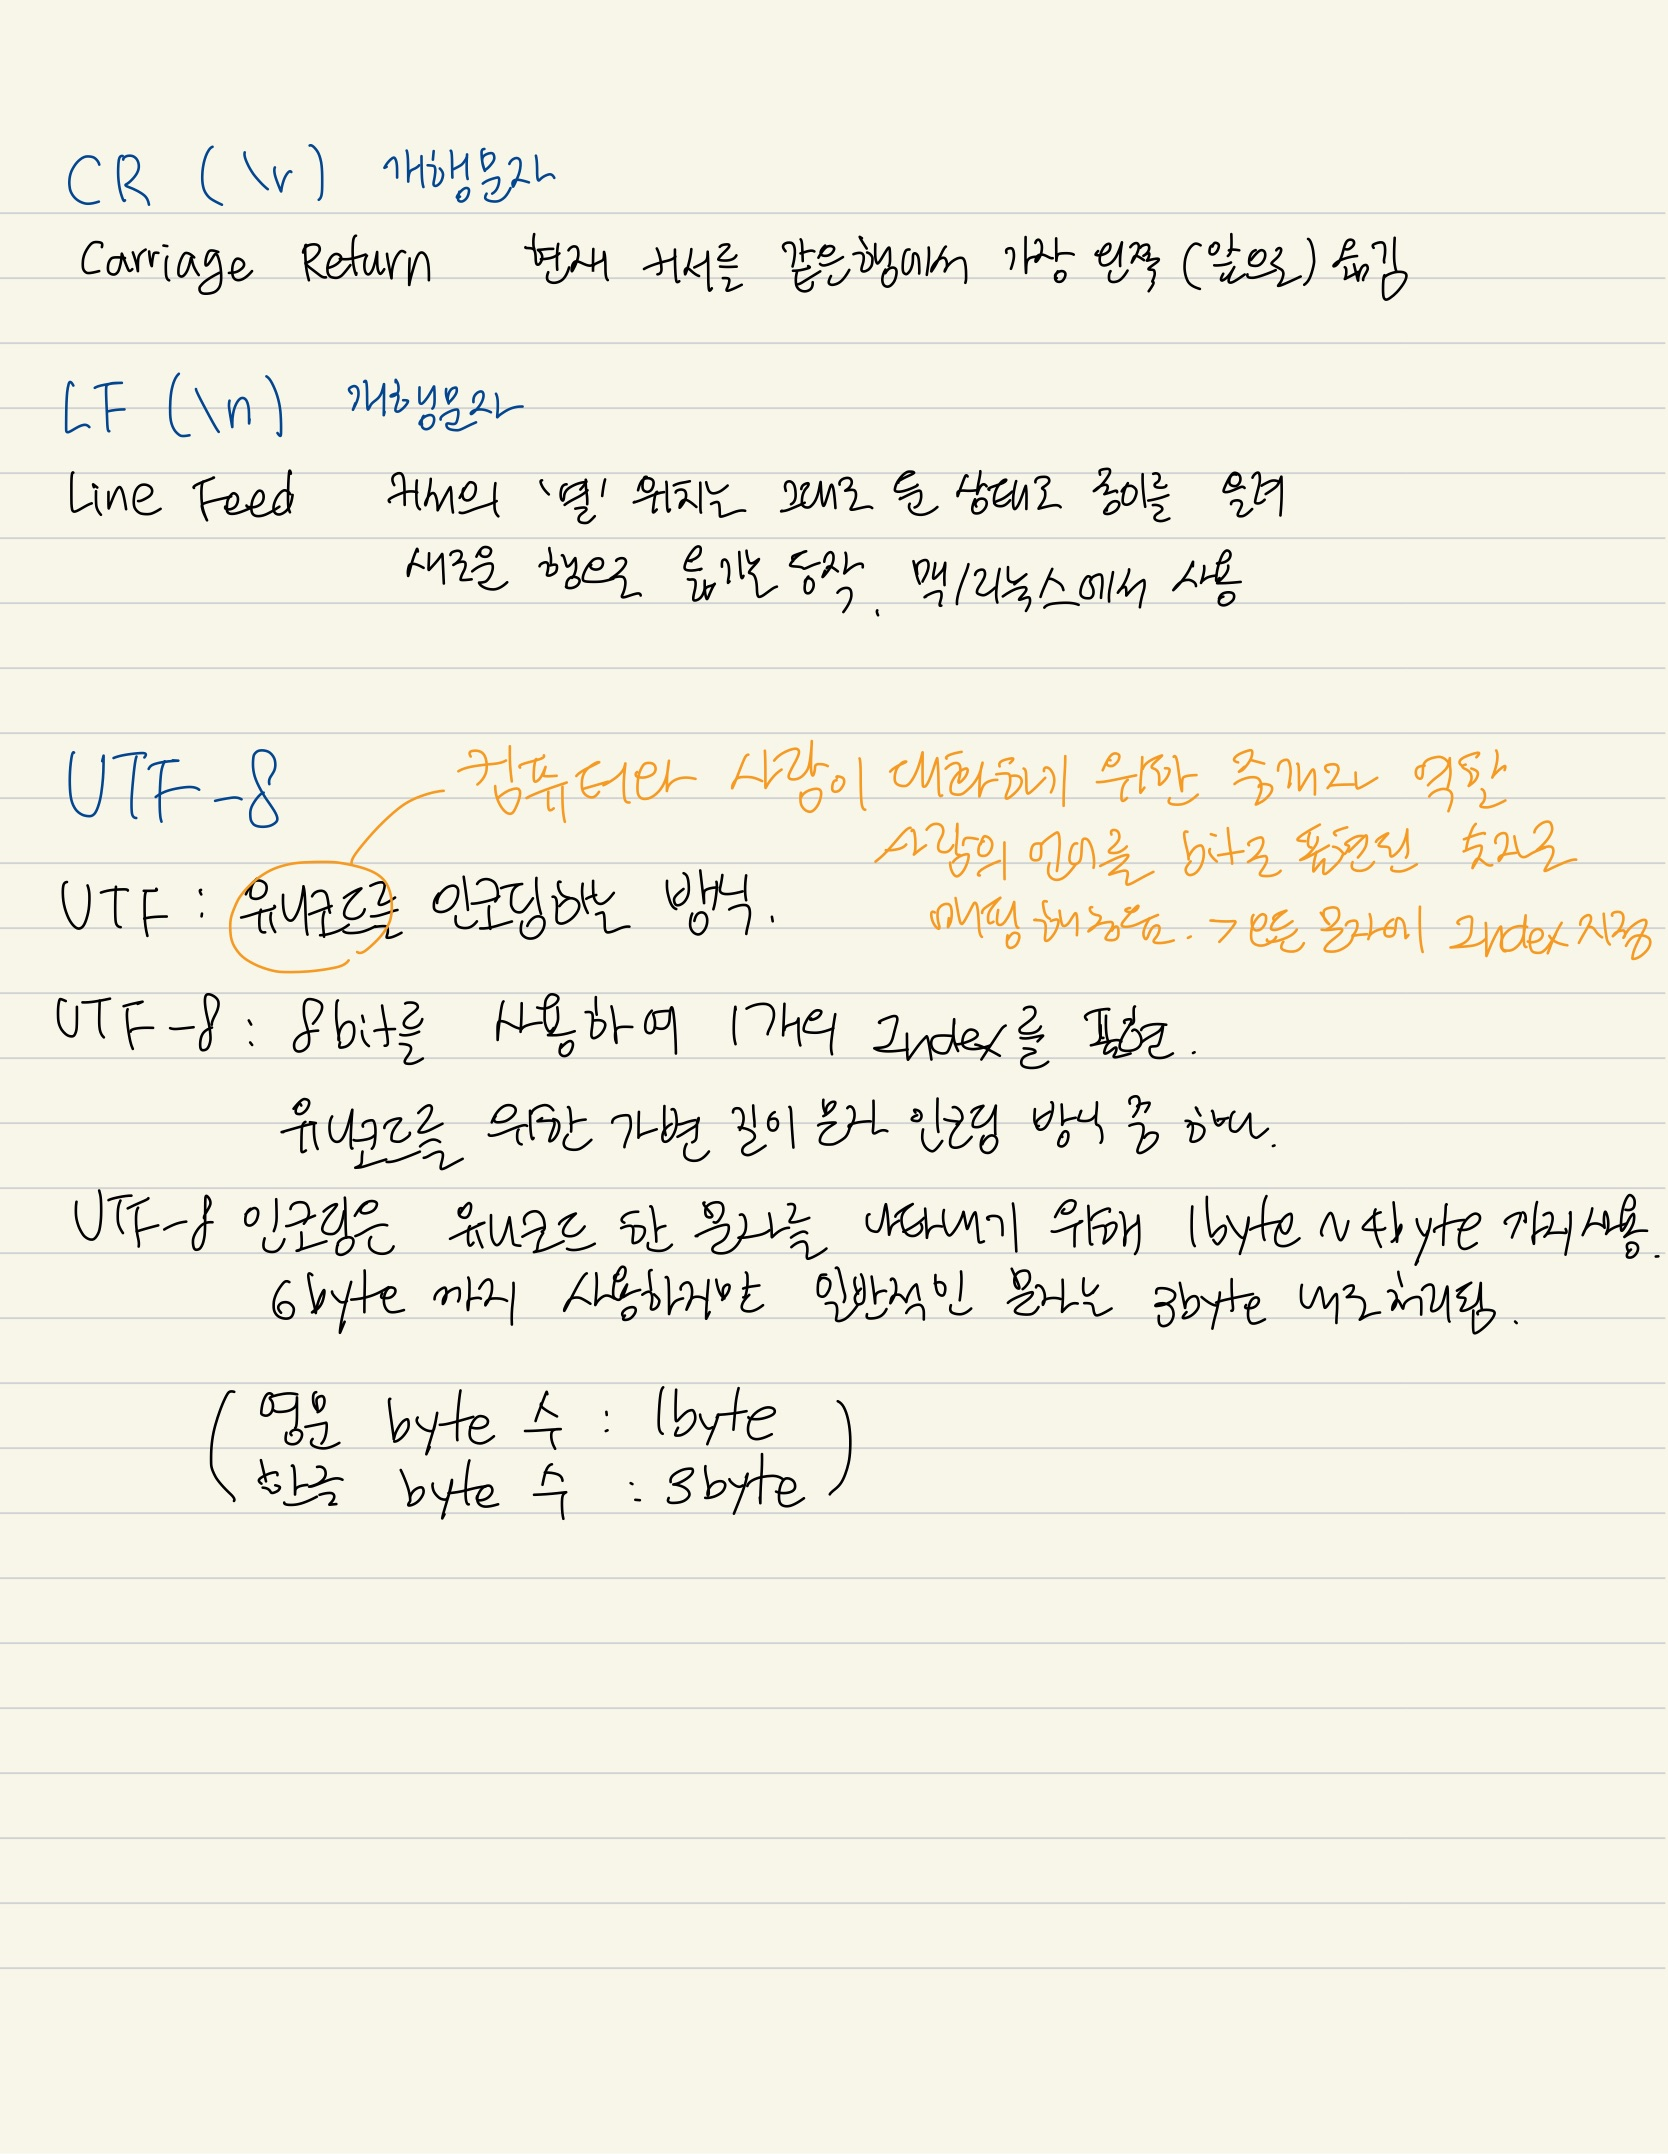 CR (\r) 개행문자
Carriage Return 현재 커서를 같은행에서 가장 왼쪽 (앞으로) 옮김
LF (\n) 개행문자
Line Feed 커서의 '열' 위치는 그대로 둔 상태로 종이를 올려
새로운 행으로 옮기는 동작. 맥/리눅스에서 사용
UTF-8 컴퓨터와 사람이 대화하기 위한 중개자 역할
사람의 언어를 bit로 표현된 숫자로
매핑해놓음. > 모든 문자에 Index 지정
UTF : 유니코드를 인코딩하는 방식.
UTF-8 : 8bit를 사용하여 1개의 Index를 표현.
유니코드를 위한 가변 길이 문자 인코딩 방식 중 하나.
UTF-8 인코딩은 유니코드 한 문자를 나타내기 위해 1byte ~ 4byte 까지 사용.
6byte 까지 사용하지만 일반적인 문자는 3byte 내로 처리됨.
( 영문 byte 수 : 1byte
한글 byte 수 : 3byte )